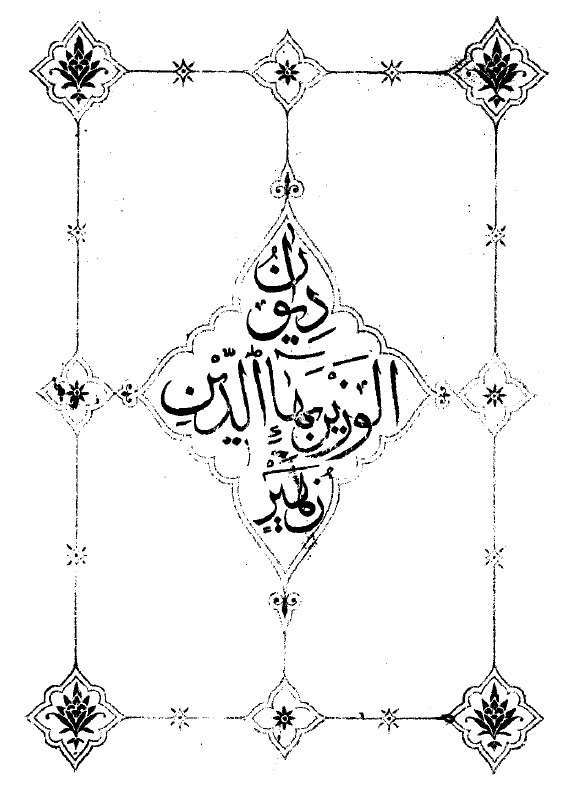 ديوان
الوزير بهاء الدين
زهير